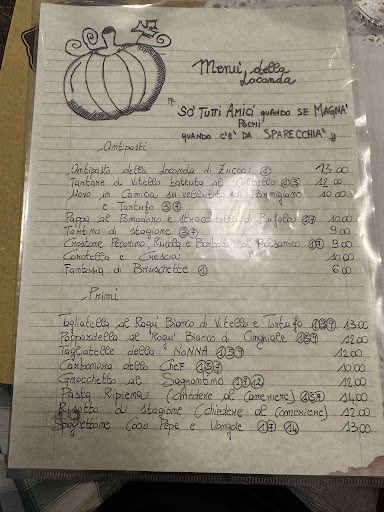 Menù della
Locanda
"SO' TUTTI AMICI QUANDO SE MAGNA'
POCHI
QUANDO C'E' DA SPARECCHIA'"
Antipasti
Antipasto della Locanda di Zucca ① 13.00
Tartare di Vitello battuta al Coltello ①③ 12.00
Uovo in Camicia su vellutata di Parmigiano 10.00
e Tartufo ③⑦
Pappa al Pomodoro e stracciatella di Bufala ①⑦ 10.00
Tortino di stagione ③⑦ 9.00
Crostone Pecorino, Rucola e al Balsamico ①⑦ 9.00
Coratella e Crescia 10.00
Fantasia di Bruschette ① 6.00
Primi
Tagliatella al Ragù Bianco di Vitello e Tartufo ①③⑨ 13.00
Pappardella al Ragù Bianco di Cinghiale ①③⑨ 12.00
Tagliatelle della NONNA ①③⑨ 12.00
Carbonara dello CHEF ①③⑦ 10.00
Gnocchetto al Sagrantino ①⑦⑫ 12.00
Pasta Ripiena (chiedere al cameriere) ①③⑦ 14.00
Risotto di stagione (chiedere al cameriere) 12.00
Spaghettone Cacio Pepe e Vongole ①⑦ ⑭ 13.00